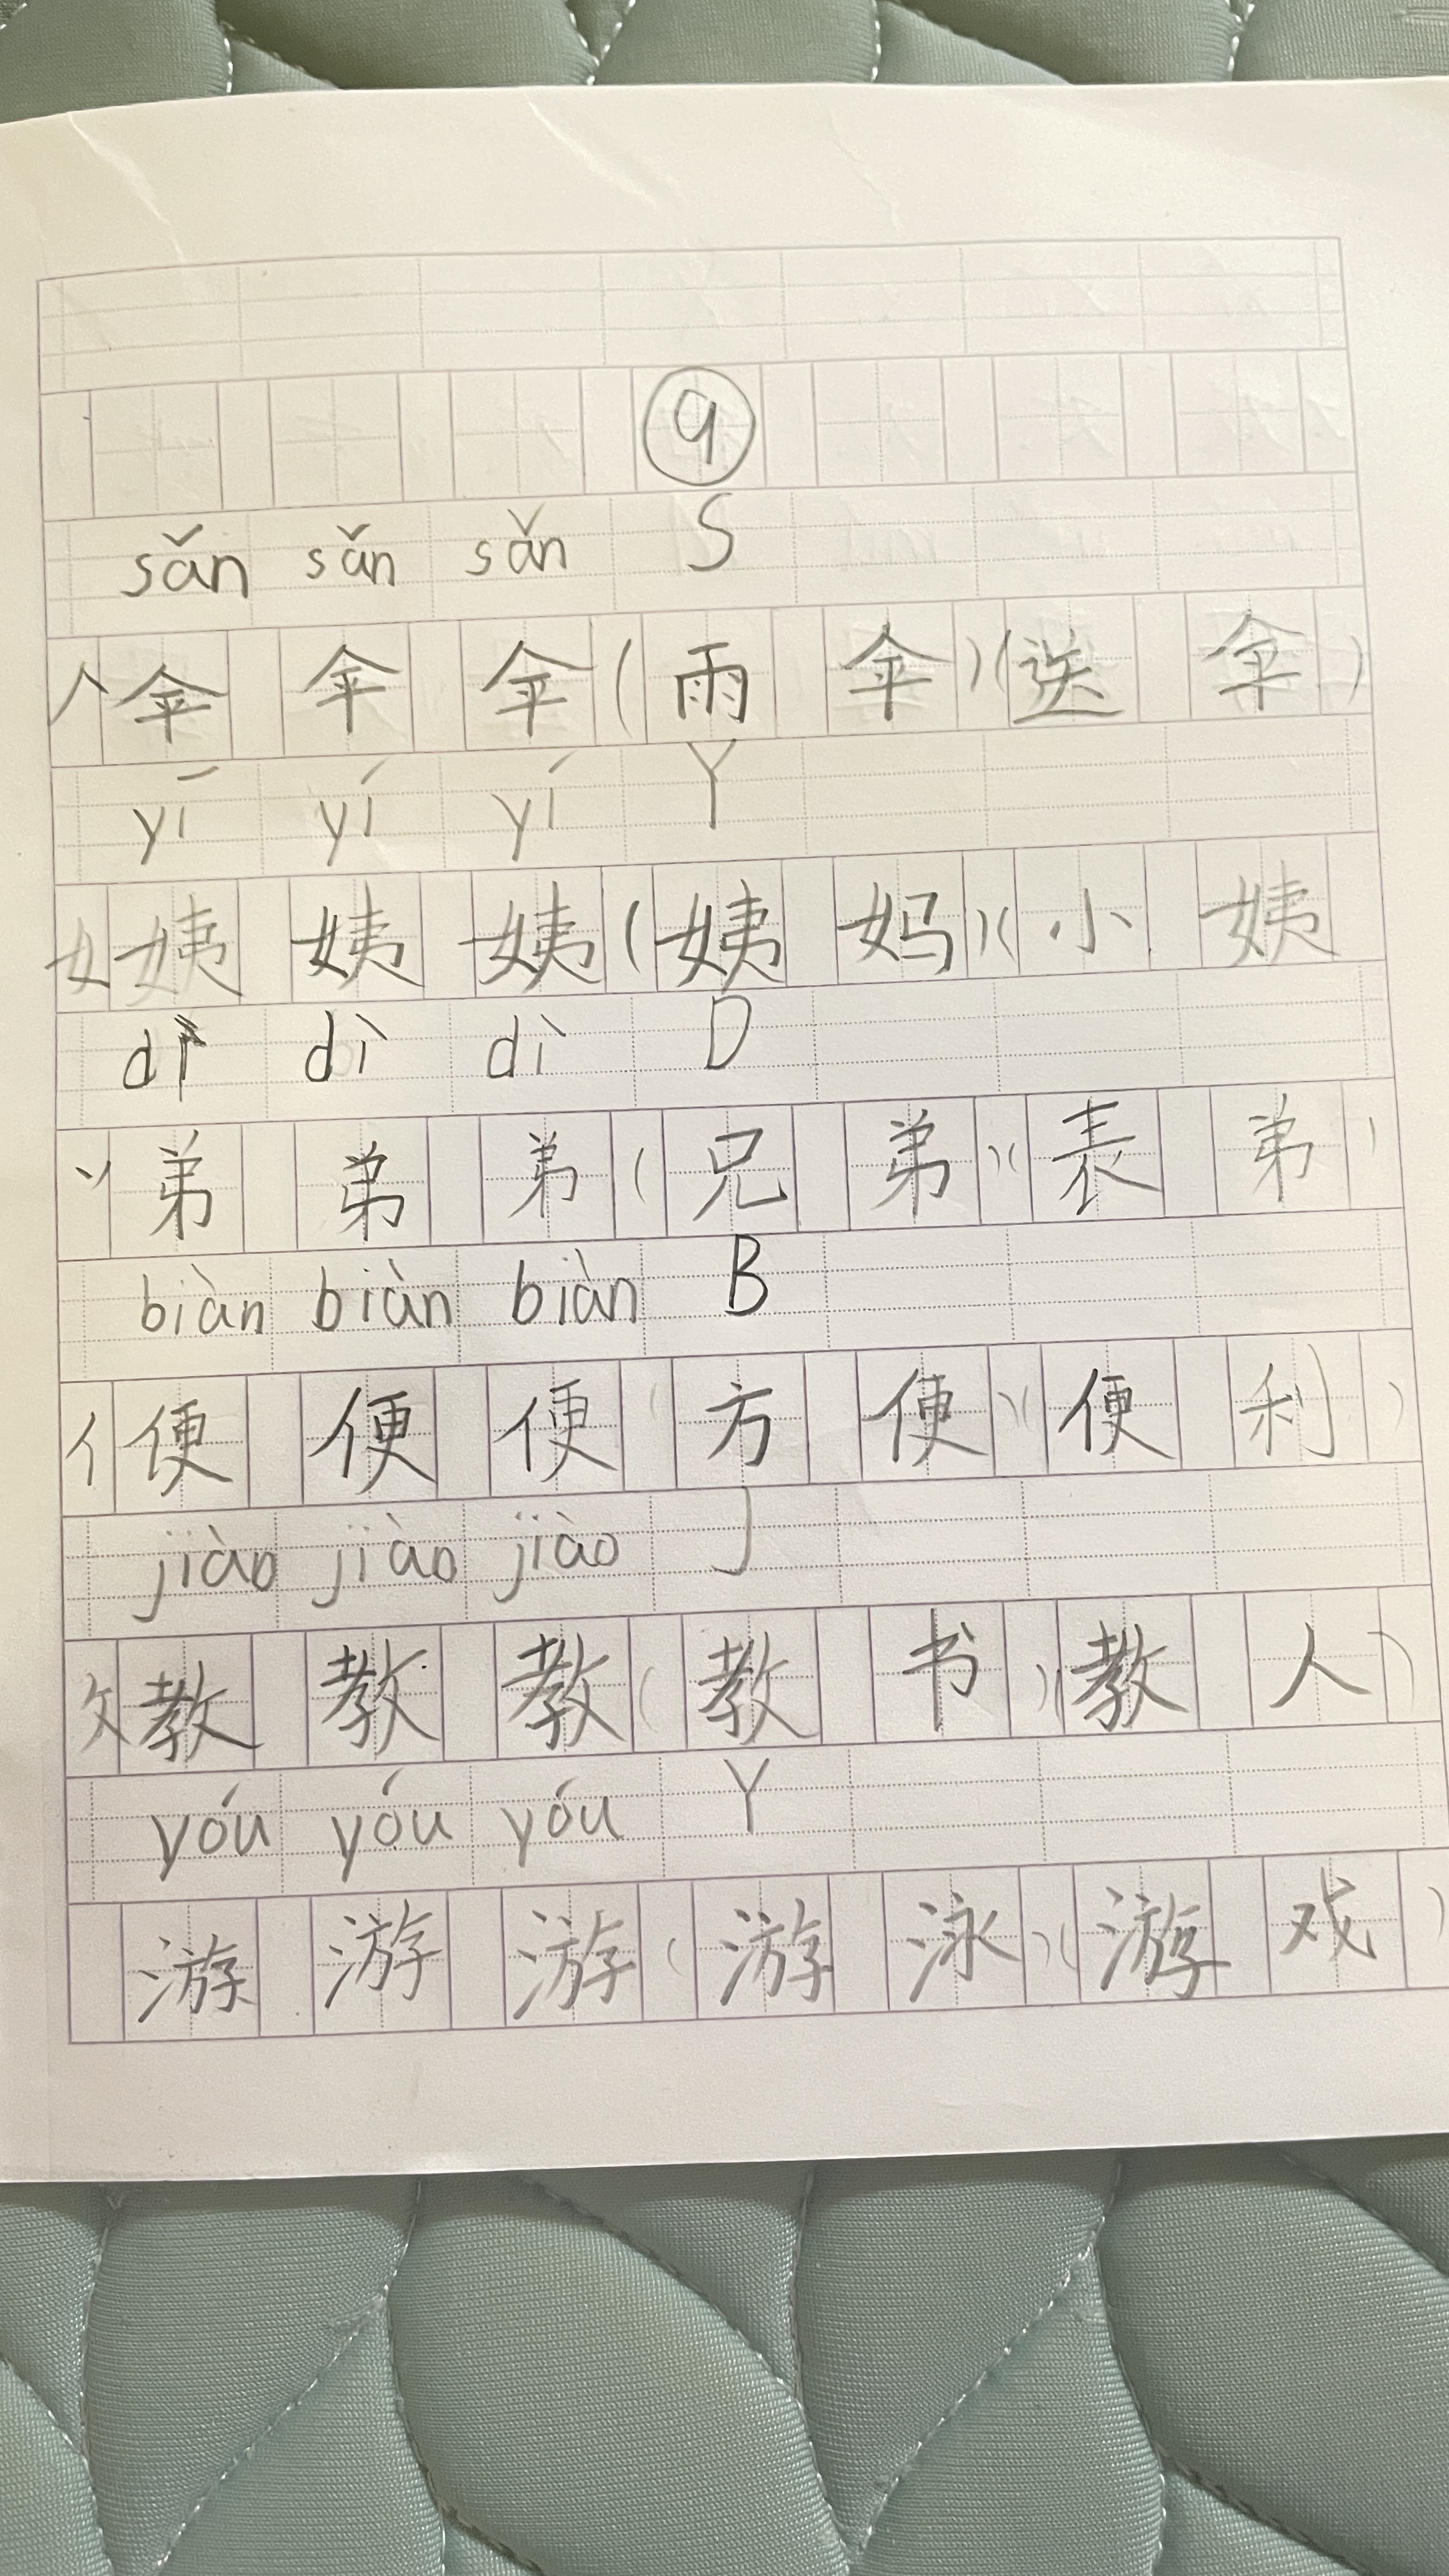 9
sǎn sǎn sǎn S
人伞 伞 伞(雨伞)(送伞)
yí yí yí Y
女姨 姨 姨(姨妈)(小姨
dì dì dì D
丷弟 弟 弟(兄弟)(表弟)
biàn biàn biàn B
亻便 便 便(方便)(便利)
jiào jiào jiào J
攵教 教 教(教书)(教人)
yóu yóu yóu Y
游 游 游(游泳)(游戏)